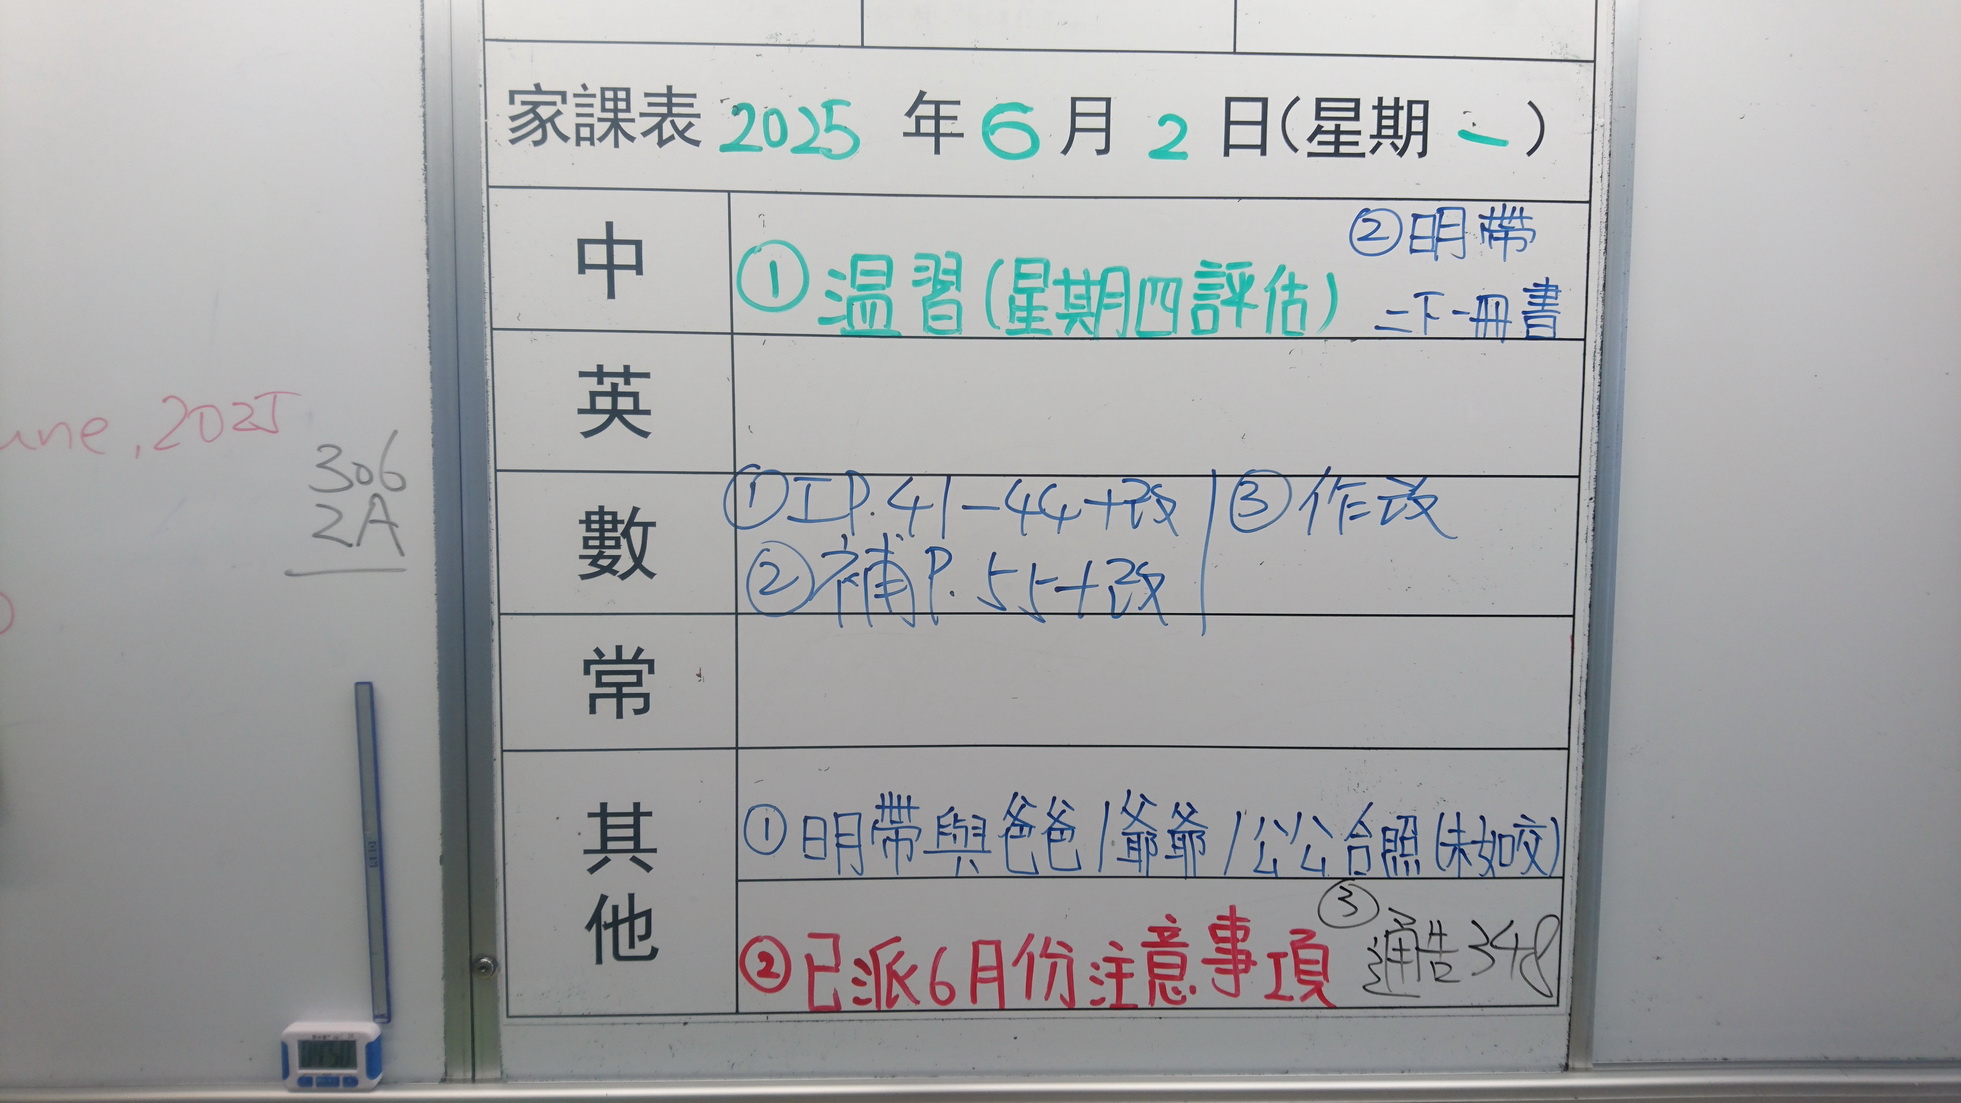 家課表 2025 年 6 月 2 日(星期一)
中
①温習(星期四評估)
②明帶
二下一冊書
英
數
①工P.41-44+改
②補P.55+改
③作改
常
其他
①明帶與爸爸/爺爺/公公合照(未如交)
②已派6月份注意事項
③通告348
une, 2025
306
2A